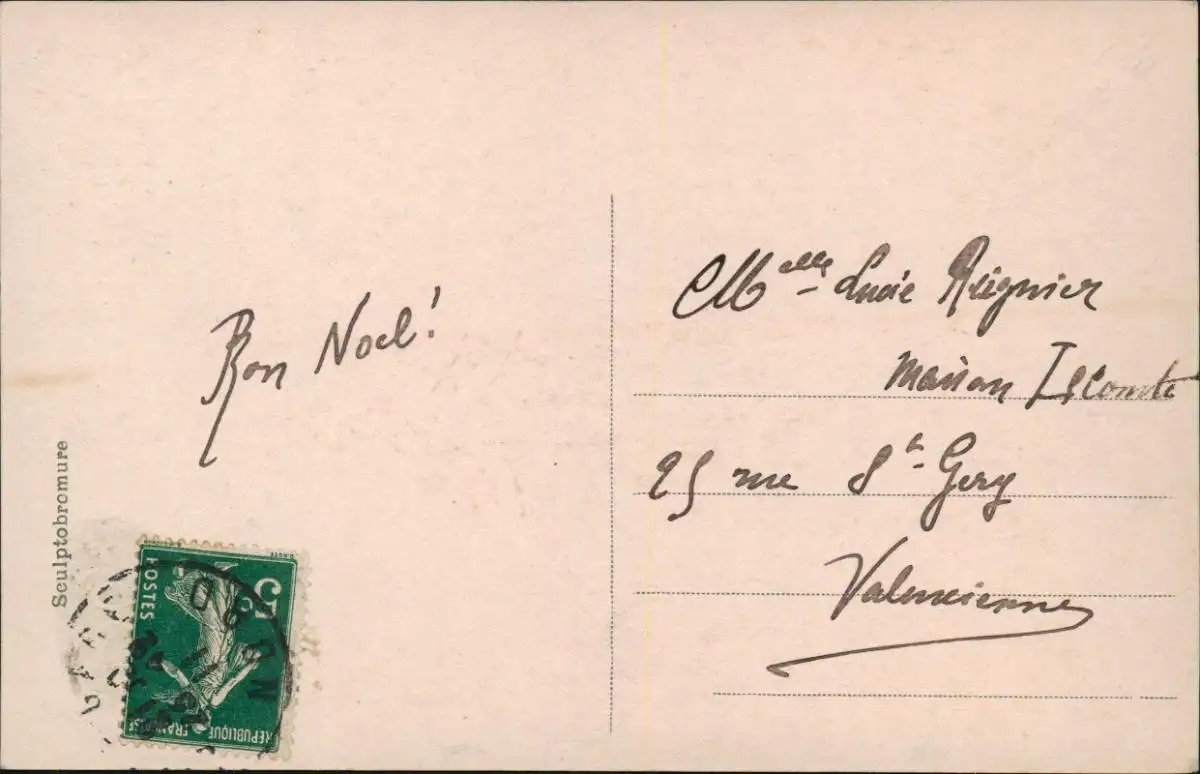 Bon Noel!
Melle Lucie Reignier
maison Lecomte
25 rue St Gery
Valenciennes
Sculptobromure
5c
POSTES
REPUBLIQUE FRANÇAISE